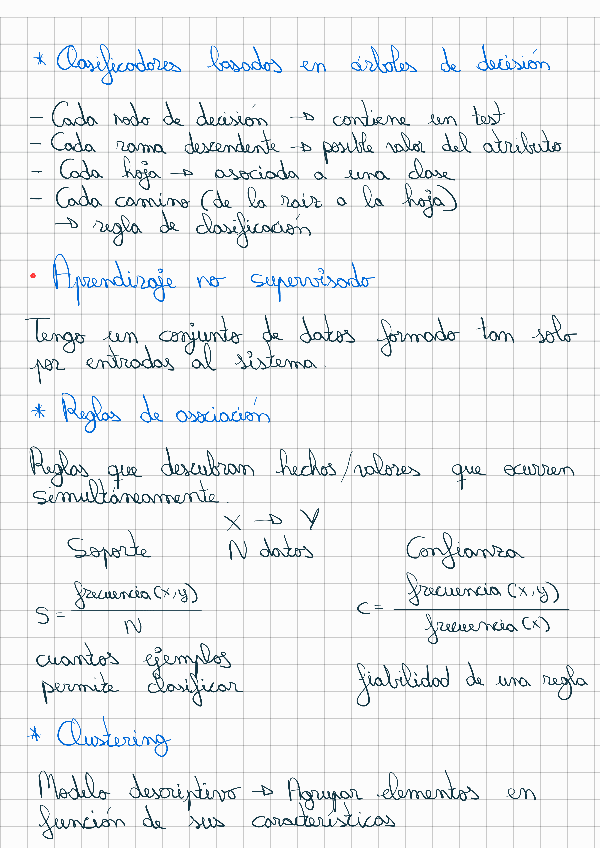 * Clasificadores basados en árboles de decisión
- Cada nodo de decisión → contiene un test
- Cada rama descendente → posible valor del atributo
- Cada hoja → asociada a una clase
- Cada camino (de la raiz a la hoja)
→ regla de clasificación
• Aprendizaje no supervisado
Tengo un conjunto de datos formado tan solo
por entradas al sistema.
* Reglas de asociación
Reglas que descubran hechos/valores que ocurren
simultáneamente.
X → Y
Soporte N datos Confianza
S = frecuencia(x,y) / N C = frecuencia(x,y) / frecuencia(x)
cuantos ejemplos
permite clasificar fiabilidad de una regla
* Clustering
Modelo descriptivo → Agrupar elementos en
función de sus características